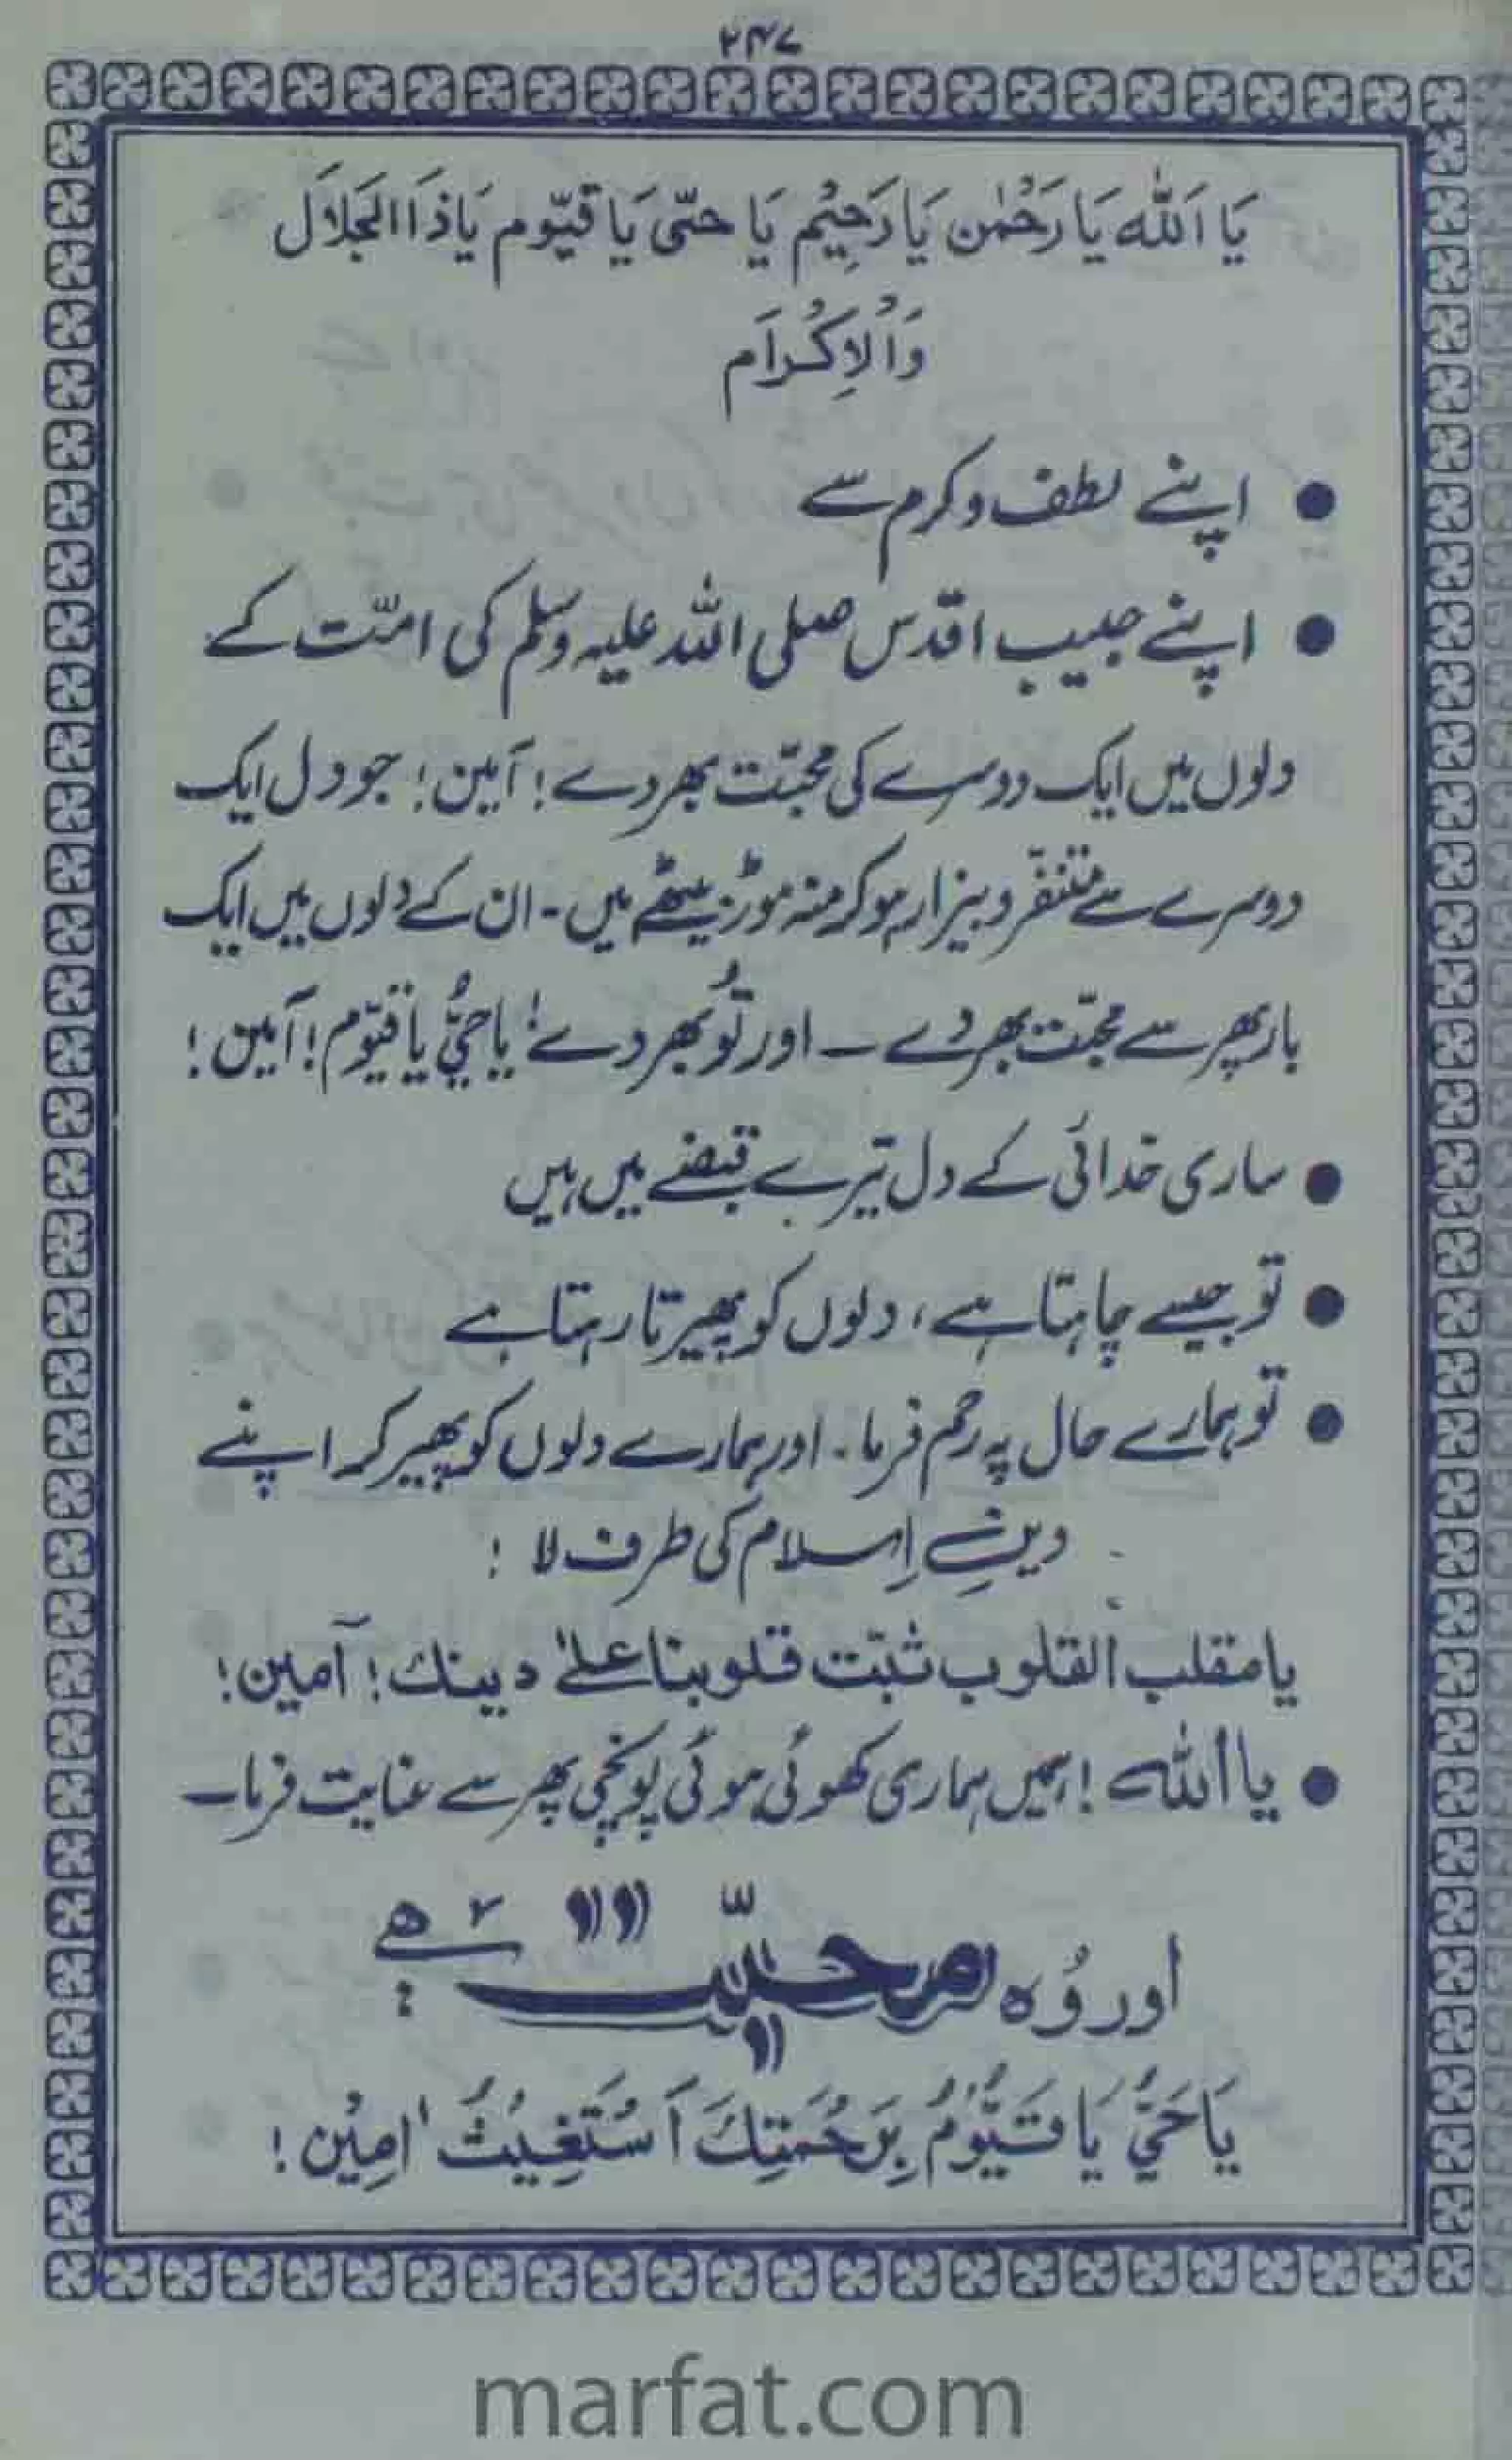 ۲۴۷
یَا اَللّٰہ یَا رَحْمٰن یَا رَحِیْم یَا حیّ یَا قیّوم یَا ذَا الجَلَال
وَالْاِکْرَام
● اپنے لطف و کرم سے
● اپنے حبیب اقدس صلی اللہ علیہ وسلم کی امّت کے
دلوں میں ایک دوسرے کی محبّت بھر دے! آمین! جو دل ایک
دوسرے سے متنفّر و بیزار ہو کر منہ موڑ بیٹھے ہیں۔ ان کے دلوں میں ایک
بار پھر سے محبّت بھر دے ۔ اور تُو بھر دے، یا حیُّ یا قیّوم! آمین!
● ساری خدائی کے دل تیرے قبضے میں ہیں
● تو جیسے چاہتا ہے، دلوں کو پھیرتا رہتا ہے
● تو ہمارے حال پہ رحم فرما۔ اور ہمارے دلوں کو پھیر کر اپنے
دینِ اِسلام کی طرف لا!
یا مقلب القلوب ثبّت قلوبنا علیٰ دینک! آمین!
● یا اللہ! ہمیں ہماری کھوئی ہوئی پونجی پھر سے عنایت فرما۔
اور وُہ محبّت ہے:
یَا حَیُّ یَا قَیُّوْمُ بِرَحْمَتِكَ اَسْتَغِیْثُ اٰمِیْن!
marfat.com